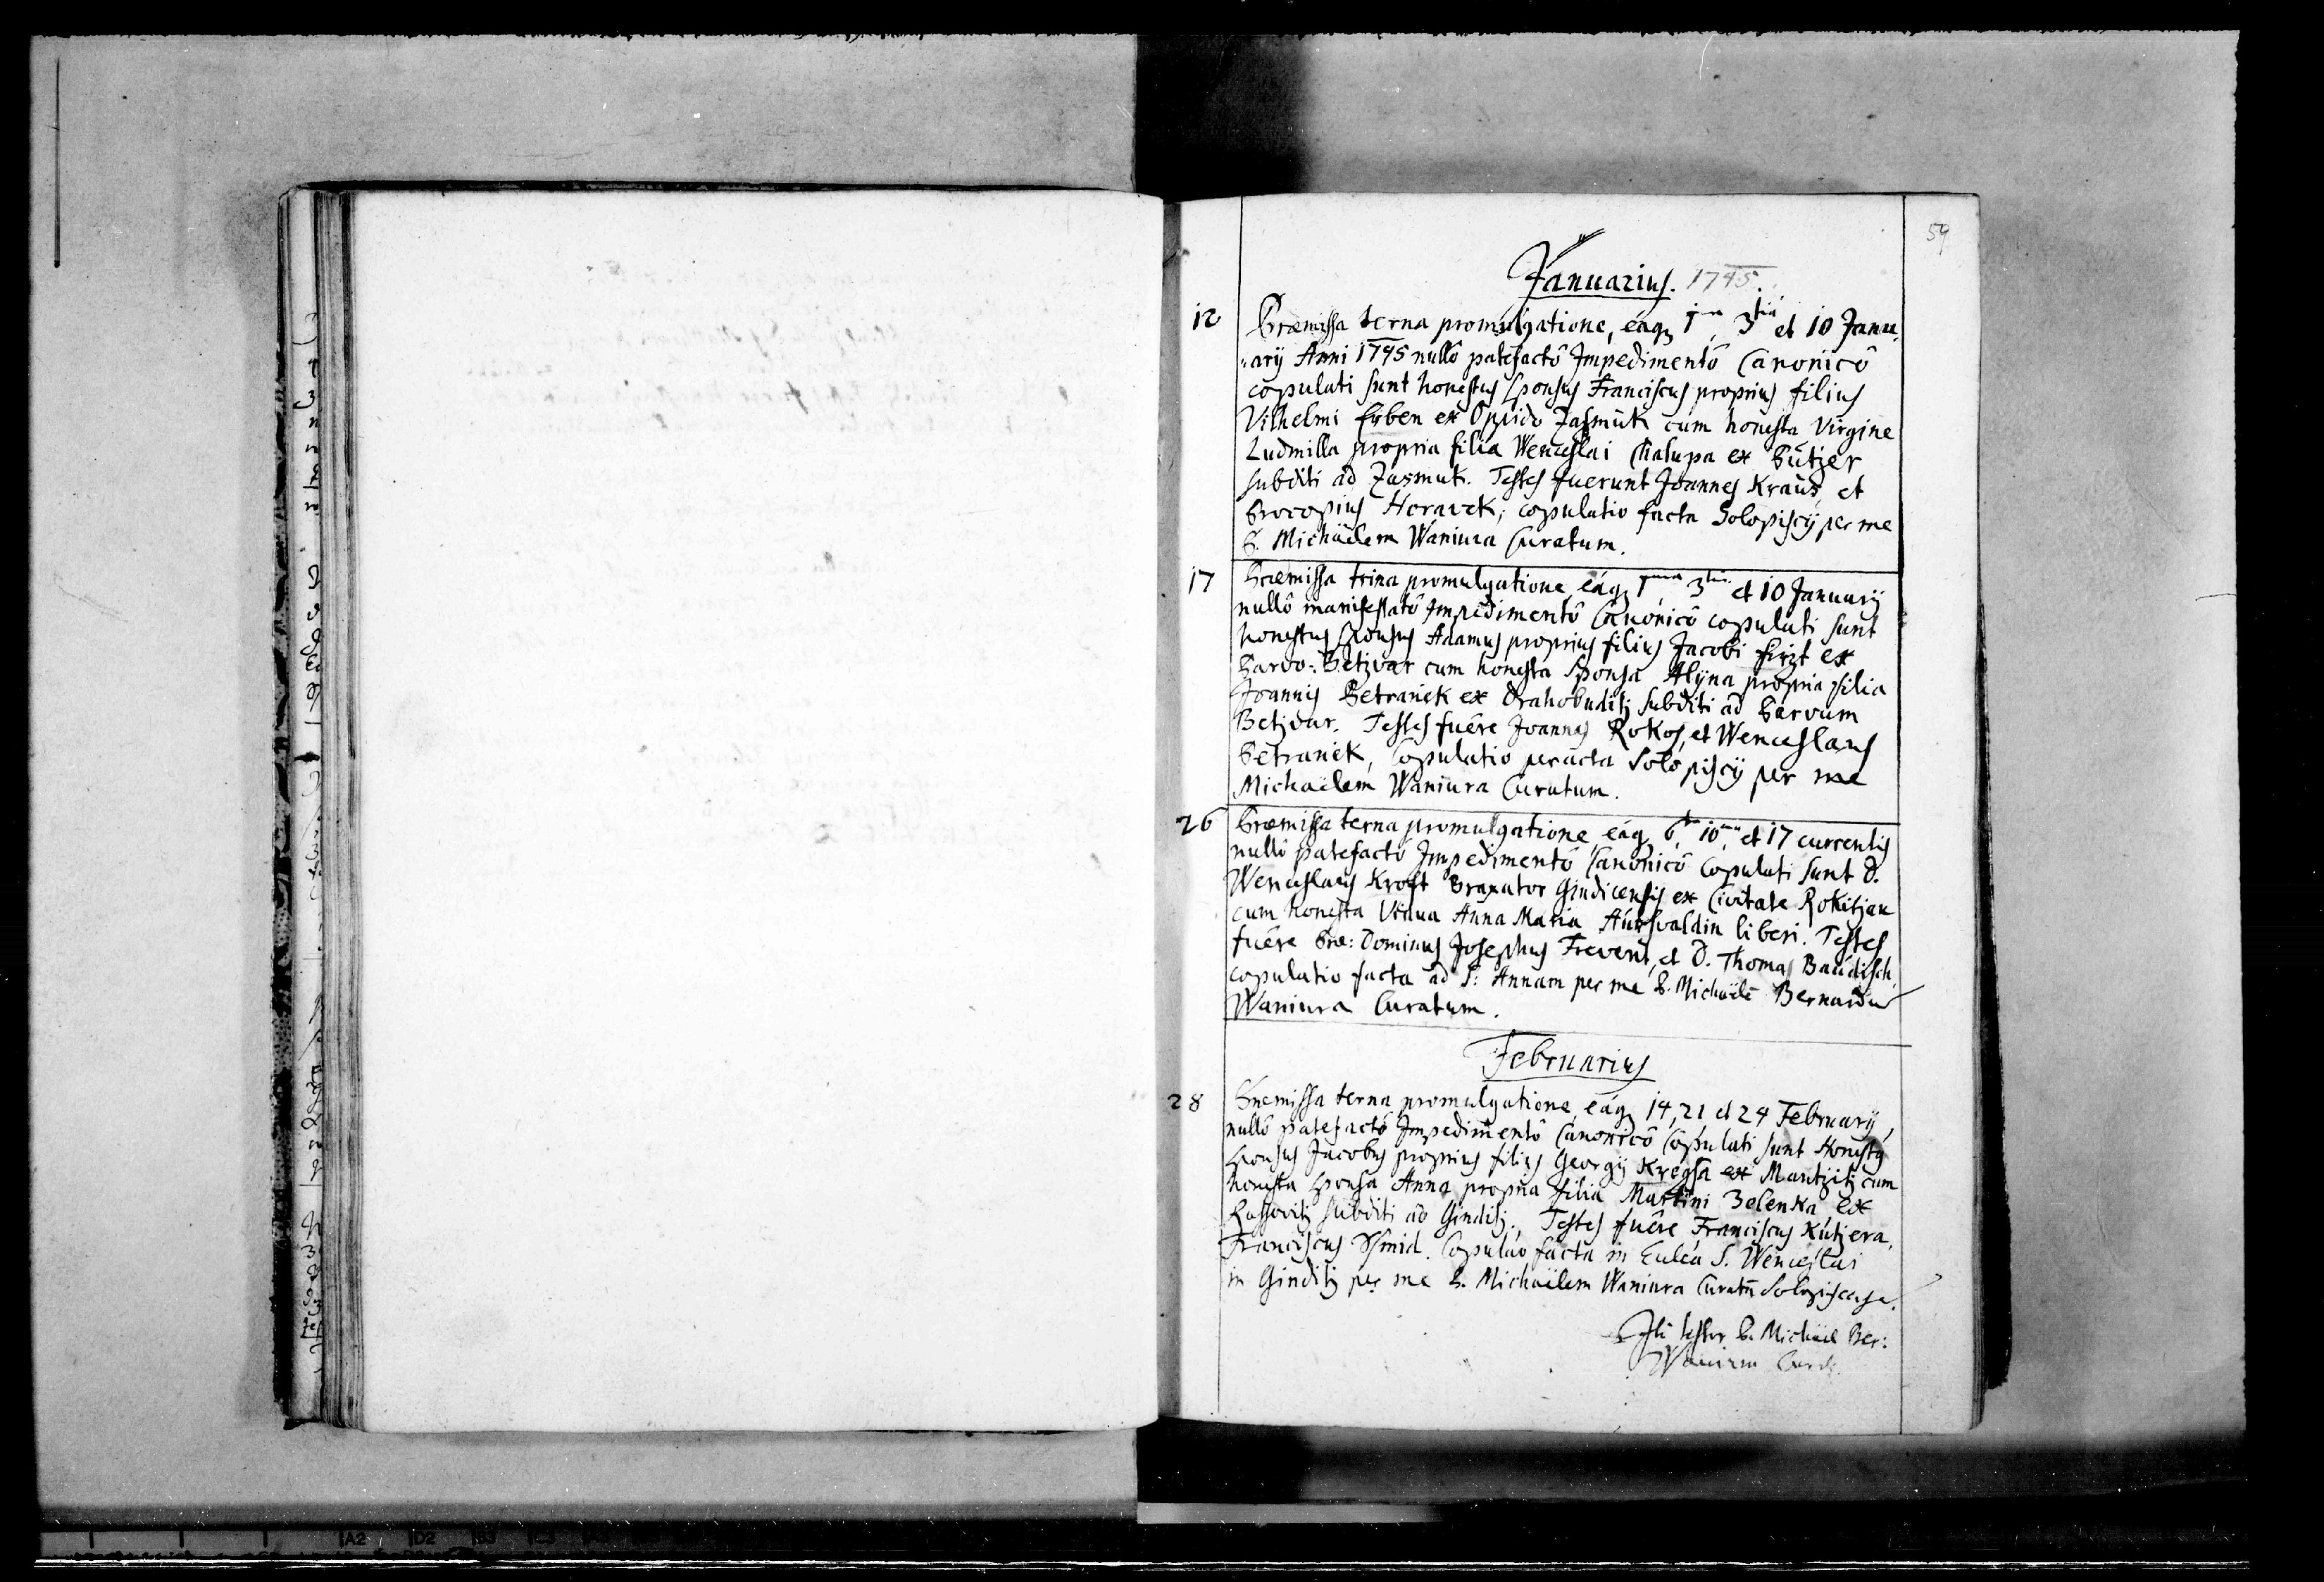 59
Januarius. 1745.
12 Præmissa terna promulgatione, eáq, 1ma, 3tia et 10 Janu
arij Anni 1745 nullô patefactô Impedimentô Canonicô
copulati sunt honestus sponsus Franciscus proprius filius
Vilhelmi Erben ex Oppido Zasmuk cum honesta Virgine
Ludmilla propria filia Wenceslai Chalupa ex
subditi ad Zasmuk. Testes fuerunt Joannes Kraus, et
Procopius Horacek; copulatio facta Solopiscij per me
P. Michäelem Waniura Curatum.
17 Præmissa trina promulgatione, eáq, 1ma 3tia et 10 January
nullô manifestatô Impedimentô Canonicô copulati sunt
honestus sponsus Adamus proprius filius Jacobi firzt ex
Parvo: Betzvar cum honesta Sponsa Alzina propria filia
Joannis Petranek ex Drahobuditz subditi ad Parvum
Betzvar. Testes fuêre Joannes Rokos, et Wenceslaus
Petranek, Copulatio peracta Solopiscij per me
Michäelem Waniura Curatum.
26 Præmissa terna promulgatione, eáq, 6ta 10ma et 17 currentis
nullô patefactô Impedimentô Canonicô Copulati sunt D.
Wenceslaus Kroft Braxator Gindicensis ex Civitate Rokitzan
cum honesta Vidua Anna Maria liberi. Testes
fuêre Præ: Dominus Josephus et D. Thomas Baudisch,
copulatio facta ad S: Annam per me P. Michäelē Bernardū
Waniura Curatum.
Februarius
28 Præmissa terna promulgatione, eáq, 14, 21 et 24 February,
nullô patefactô Impedimentô Canonicô Copulati sunt Honestg
sponsus Jacobus proprius filius Georgij Kregsa ex cum
honesta sponsa Anna propria filia Martini Zelenka ex
subditi ad Ginditz. Testes fuêre Franciscus Kutzera,
Franciscus Ssmid. Copulaō facta in Eccleā S. Wenceslai
in Ginditz per me P. Michäelem Waniura Curatū Solopiscensē.
Ità testor P. Michäel Ber:
Waniura